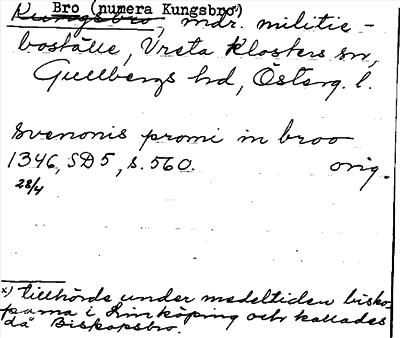 Bro (numera Kungsbro)
Kungsbro, mdr. militie-
boställe, Vreta Klosters sn,
Gullbergs hd, Österg. l.
Svenonis promi in broo
1346, SD 5, s. 560. orig.
28/4
x) tillhörde under medeltiden bisko-
parna i Linköping och kallades
då Biskopsbro.